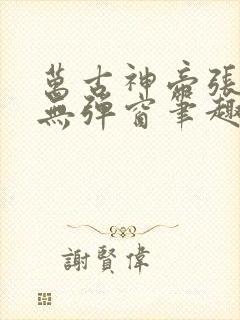 萬古神帝張
無彈窗筆趣
謝賢偉